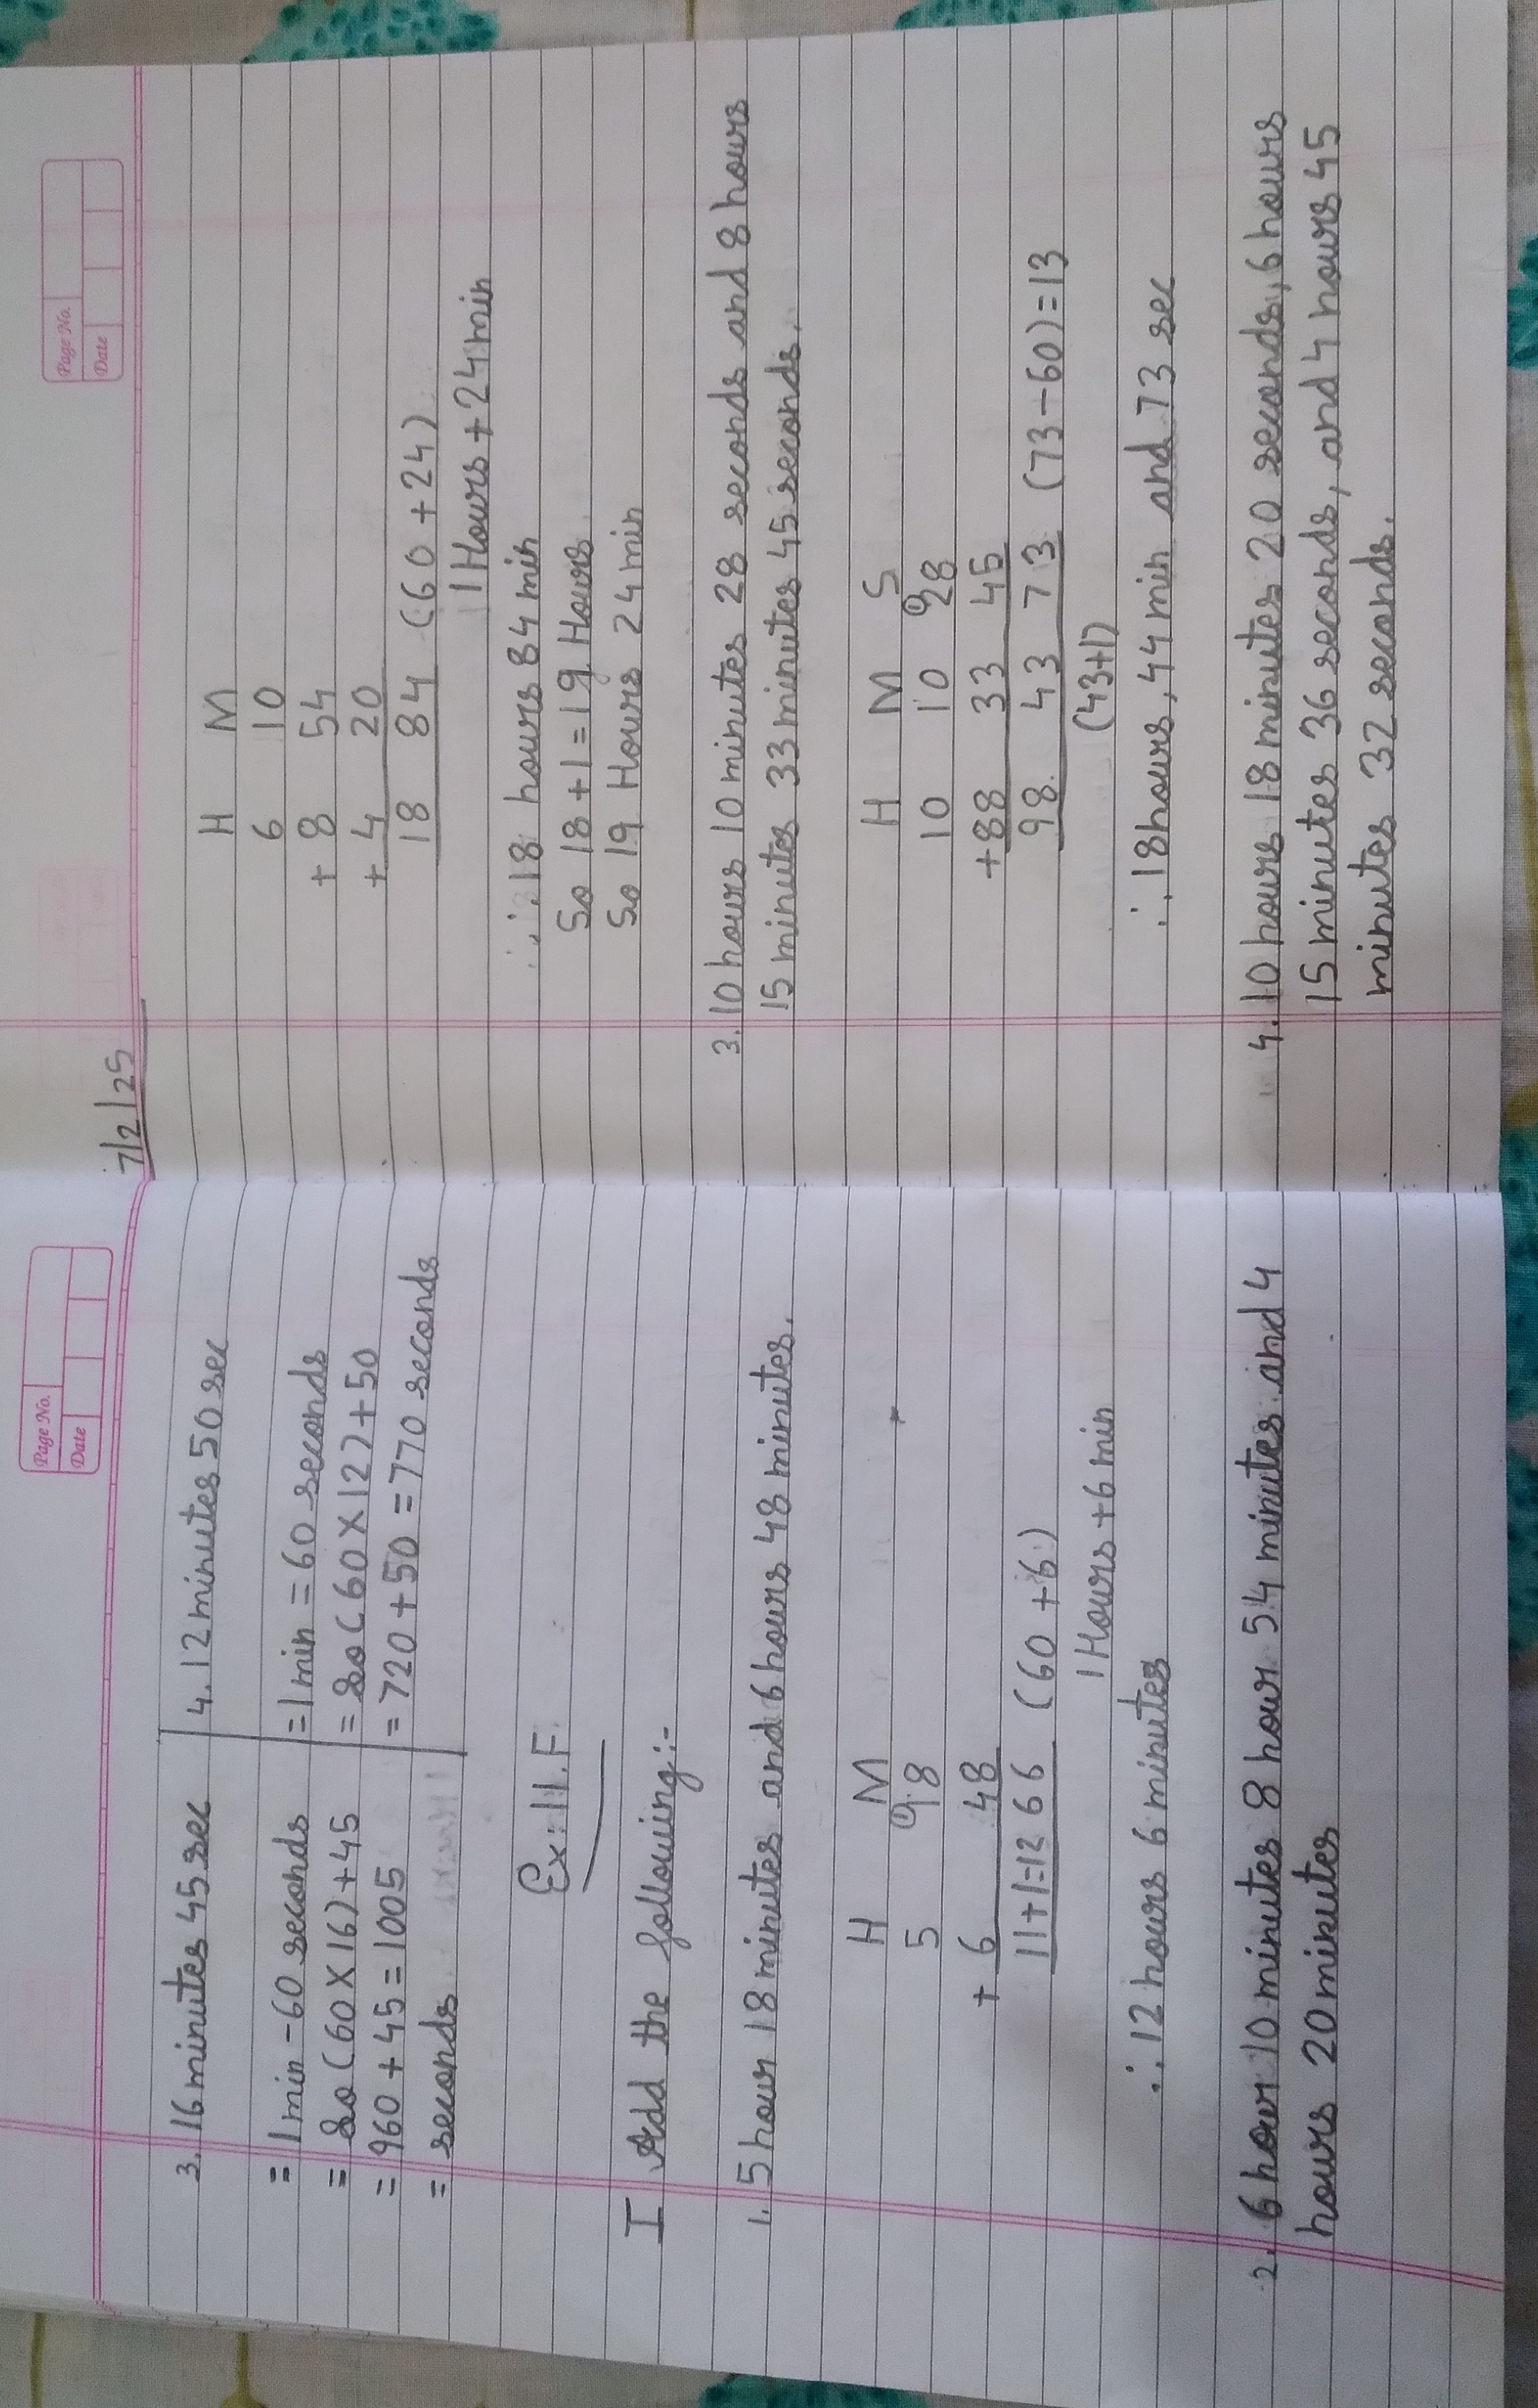 Page No.
Date
3. 16 minutes 45 sec
= 1 min - 60 seconds
= so (60 × 16) + 45
= 960 + 45 = 1005
= seconds
4. 12 minutes 50 sec
= 1 min = 60 seconds
= so (60 × 12) + 50
= 720 + 50 = 770 seconds
Ex: 11.F
I Add the following:-
1. 5 hour 18 minutes and 6 hours 48 minutes.
H M
5 18
+ 6 48
11+1=12 66 (60 + 6)
1 Hours + 6 min
∴ 12 hours 6 minutes
2. 6 hour 10 minutes 8 hour 54 minutes and 4
hours 20 minutes
7/2/25
Page No.
Date
H M
6 10
+ 8 54
+ 4 20
18 84 (60 + 24)
1 Hours + 24 min
∴ 18 hours 84 min
So 18 + 1 = 19 Hours
So 19 Hours 24 min
3. 10 hours 10 minutes 28 seconds and 8 hours
15 minutes 33 minutes 45 seconds.
H M S
10 10 28
+ 88 33 45
98 43 73 (73 - 60) = 13
(43+1)
∴ 18 hours, 44 min and 73 sec
4. 10 hours 18 minutes 20 seconds, 6 hours
15 minutes 36 seconds, and 4 hours 45
minutes 32 seconds.